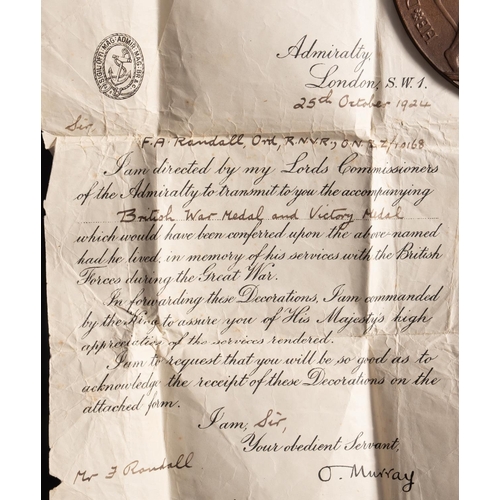 SIGILL. OFFI. MAG. ADMIR. MAG.
Admiralty,
London, S.W.1.
25th October 1924
Sir,
F.A. Randall, Ord, R.N.V.R., O.N.
I am directed by my Lords Commissioners
of the Admiralty to transmit to you the accompanying
British War Medal, and Victory Medal
which would have been conferred upon the above-named
had he lived, in memory of his services with the British
Forces during the Great War.
In forwarding these Decorations, I am commanded
by the King to assure you of His Majesty's high
appreciation of the services rendered.
I am to request that you will be so good as to
acknowledge the receipt of these Decorations on the
attached form.
I am, Sir,
Your obedient Servant,
Mr F Randall
O. Murray